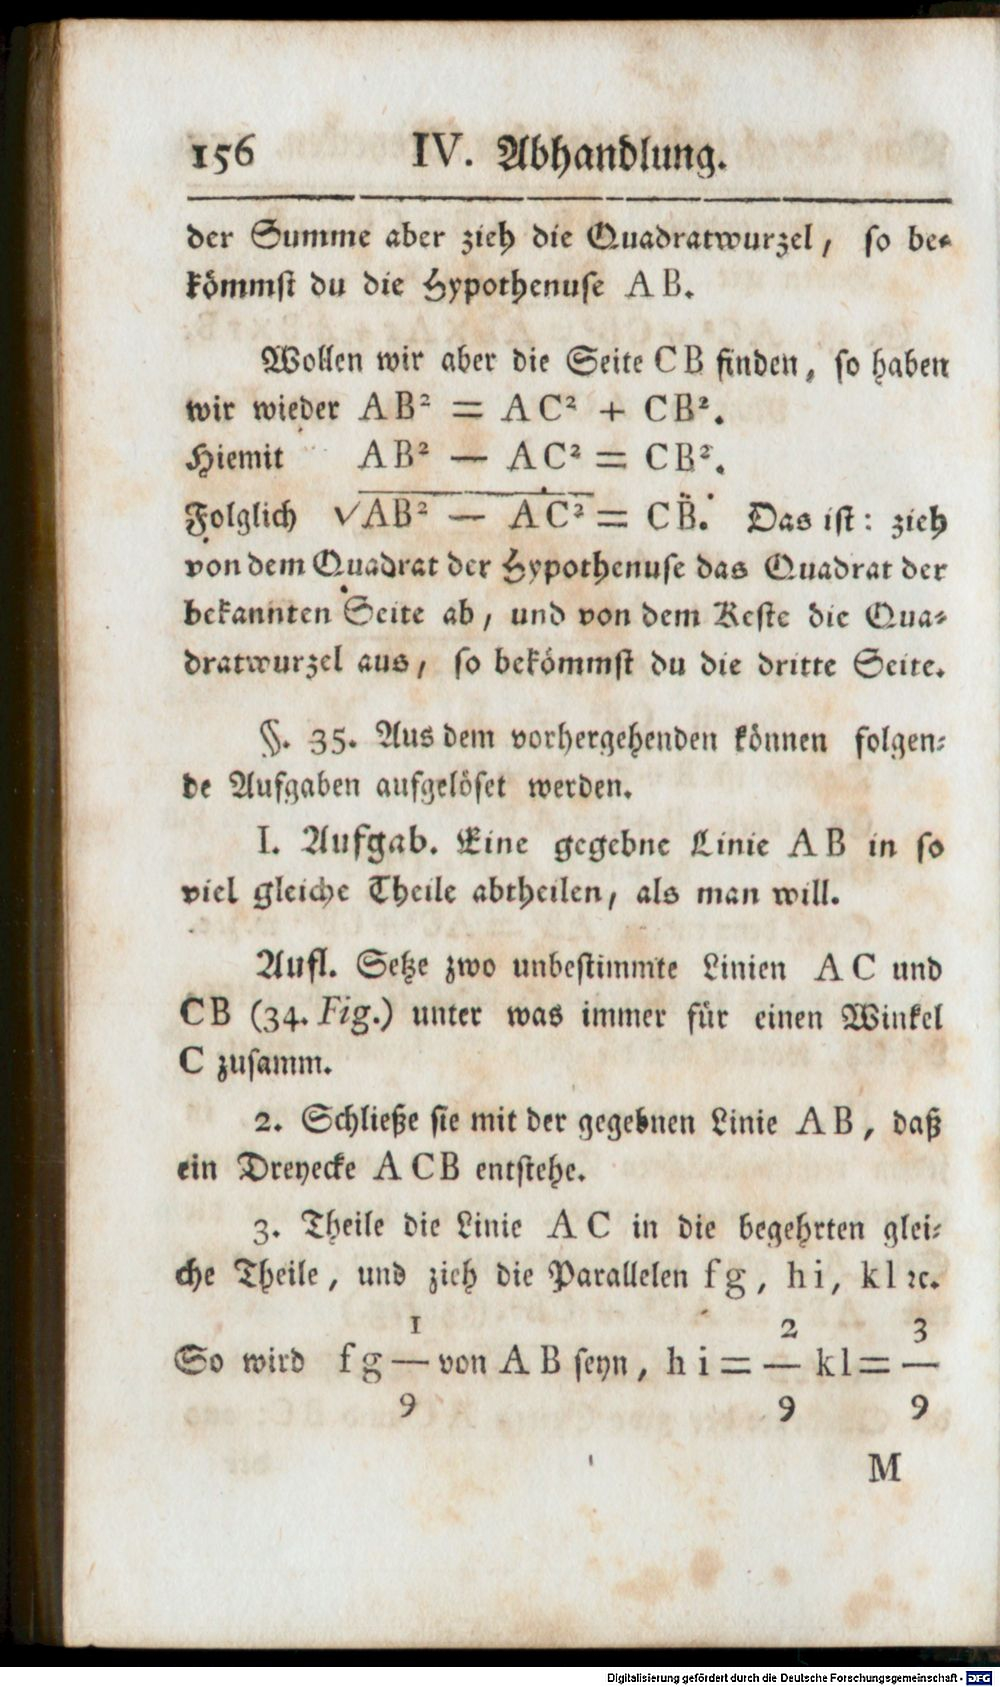 156 IV. Abhandlung.
der Summe aber zieh die Quadratwurzel, so be-
kömmst du die Hypothenuse A B.
Wollen wir aber die Seite C B finden, so haben
wir wieder A B² = A C² + C B².
Hiemit A B² — A C² = C B².
Folglich √A B² — A C² = C B. Das ist: zieh
von dem Quadrat der Hypothenuse das Quadrat der
bekannten Seite ab, und von dem Reste die Qua-
dratwurzel aus, so bekömmst du die dritte Seite.
§. 35. Aus dem vorhergehenden können folgen-
de Aufgaben aufgelöset werden.
I. Aufgab. Eine gegebne Linie A B in so
viel gleiche Theile abtheilen, als man will.
Aufl. Setze zwo unbestimmte Linien A C und
C B (34. Fig.) unter was immer für einen Winkel
C zusamm.
2. Schließe sie mit der gegebnen Linie A B, daß
ein Dreyecke A C B entstehe.
3. Theile die Linie A C in die begehrten glei-
che Theile, und zieh die Parallelen f g, h i, k l ꝛc.
1 2 3
So wird f g — von A B seyn, h i = — k l = —
9 9 9
M
Digitalisierung gefördert durch die Deutsche Forschungsgemeinschaft - DFG